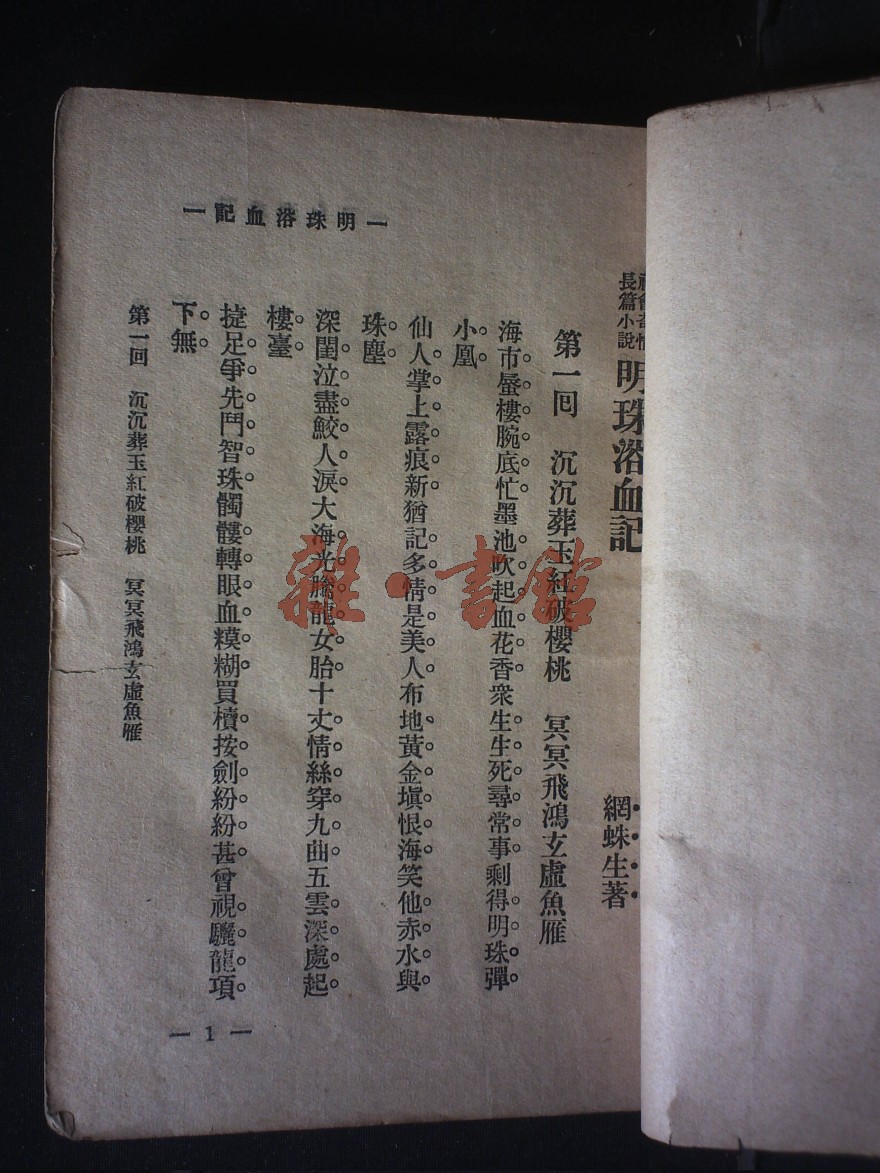 一明珠浴血記一
長篇小說
明珠浴血記
網蛛生著
第一回　沉沉葬玉紅破櫻桃　冥冥飛鴻玄虛魚雁
海市蜃樓腕底忙墨池吹起血花香衆生生死尋常事剩得明珠彈
小凰
仙人掌上露痕新猶記多情是美人布地黃金塡恨海笑他赤水與
珠塵
深閨泣盡鮫人淚大海光騰龍女胎十丈情絲穿九曲五雲深處起
樓臺
㨗足爭先鬥智珠髑髏轉眼血糢糊買櫝按劍紛紛甚曾視驪龍項
下無
第一回　沉沉葬玉紅破櫻桃　冥冥飛鴻玄虛魚雁
— 1 —
雜·書館